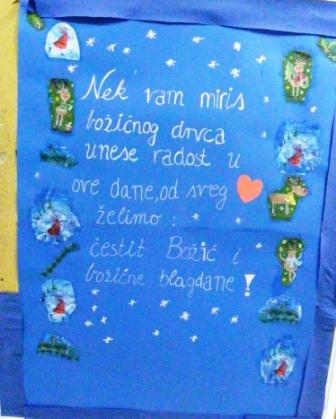 Nek' vam miris
božičnog drvca
unese radost u
ove dane, od sveg
želimo:
čestit Božić i
božične blagdane!